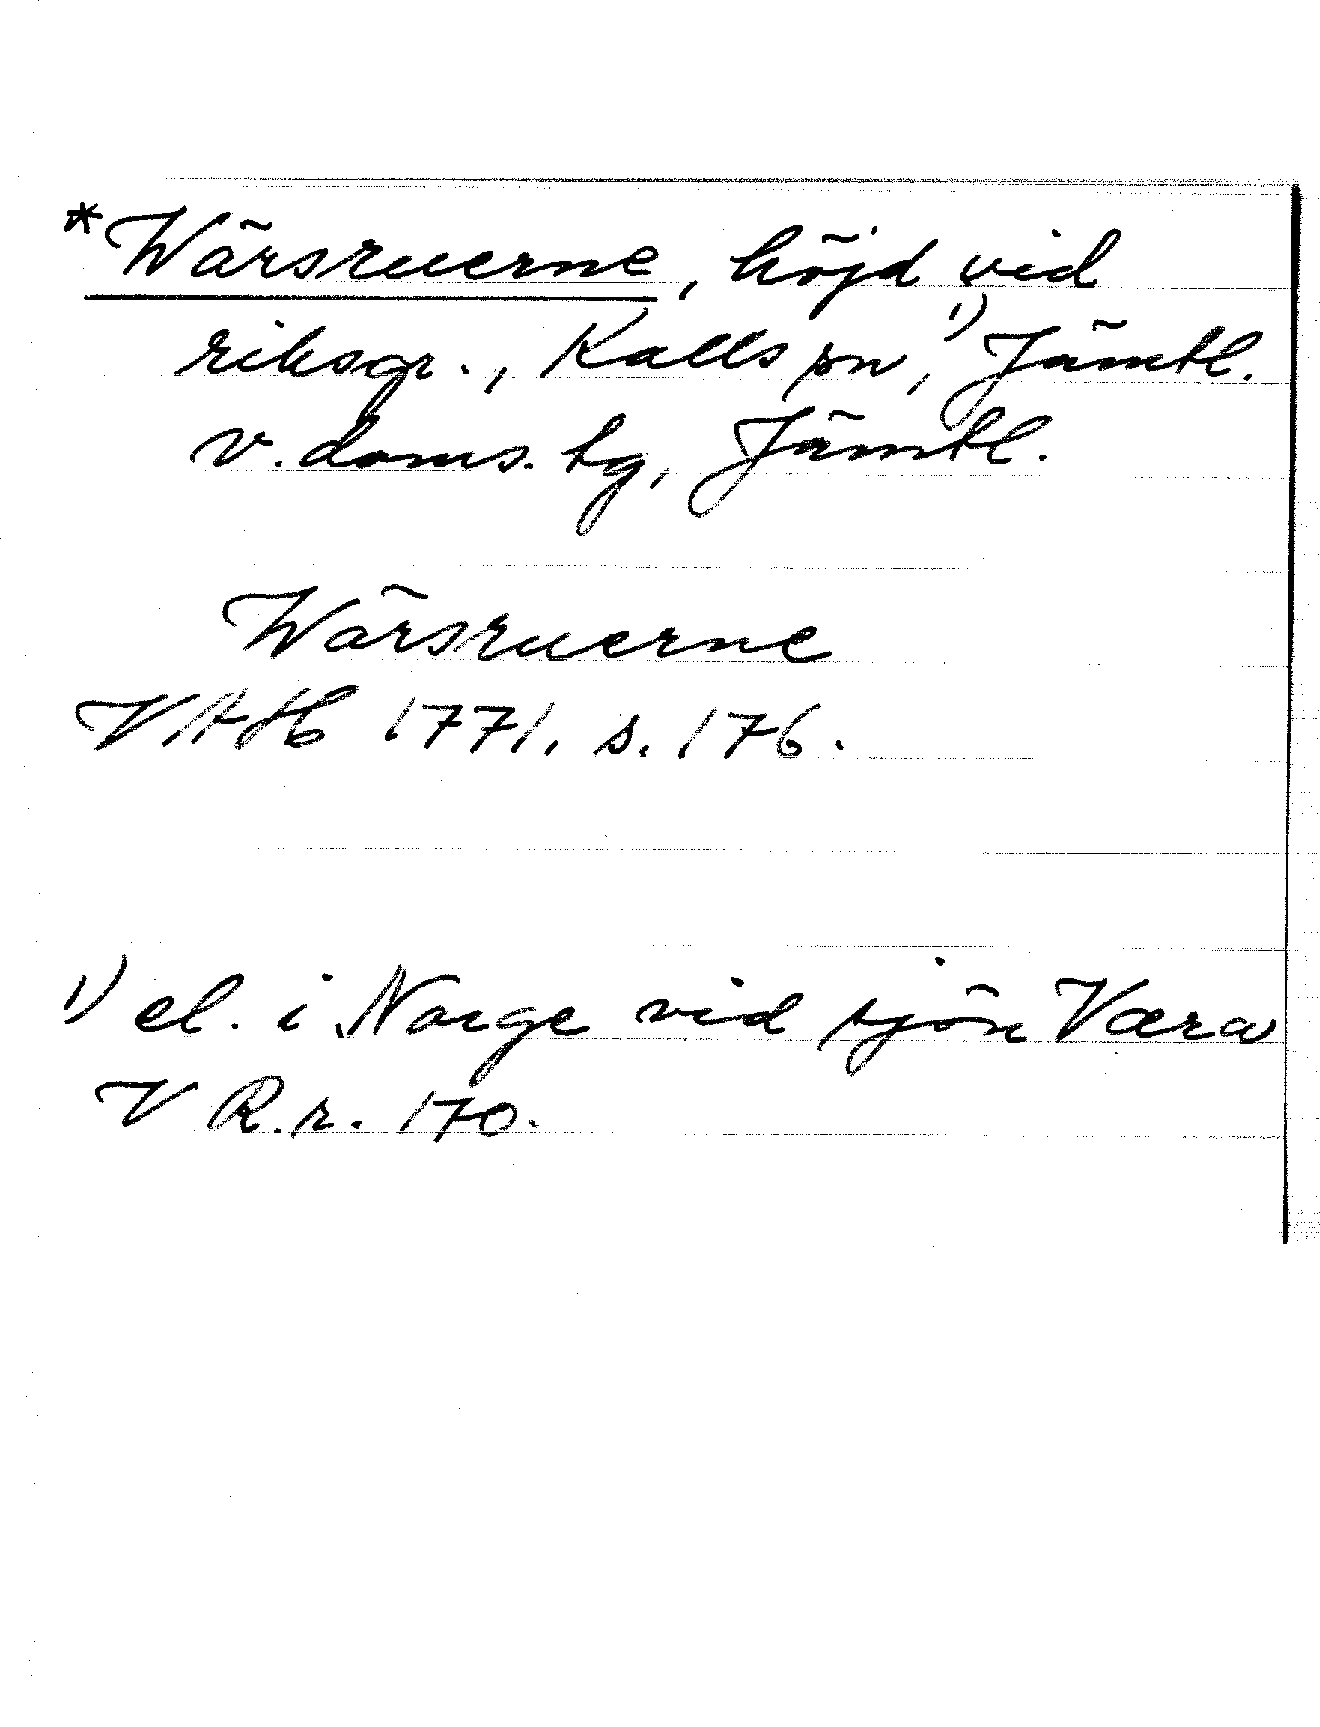 *Wärsruerne, höjd vid
riksgr., Kalls sn,¹⁾ Jämtl.
v. doms. tg, Jämtl.
Wärsruerne
VAH 1771. s. 176.
¹⁾ el. i Norge vid sjön Væra
V R.r. 170.